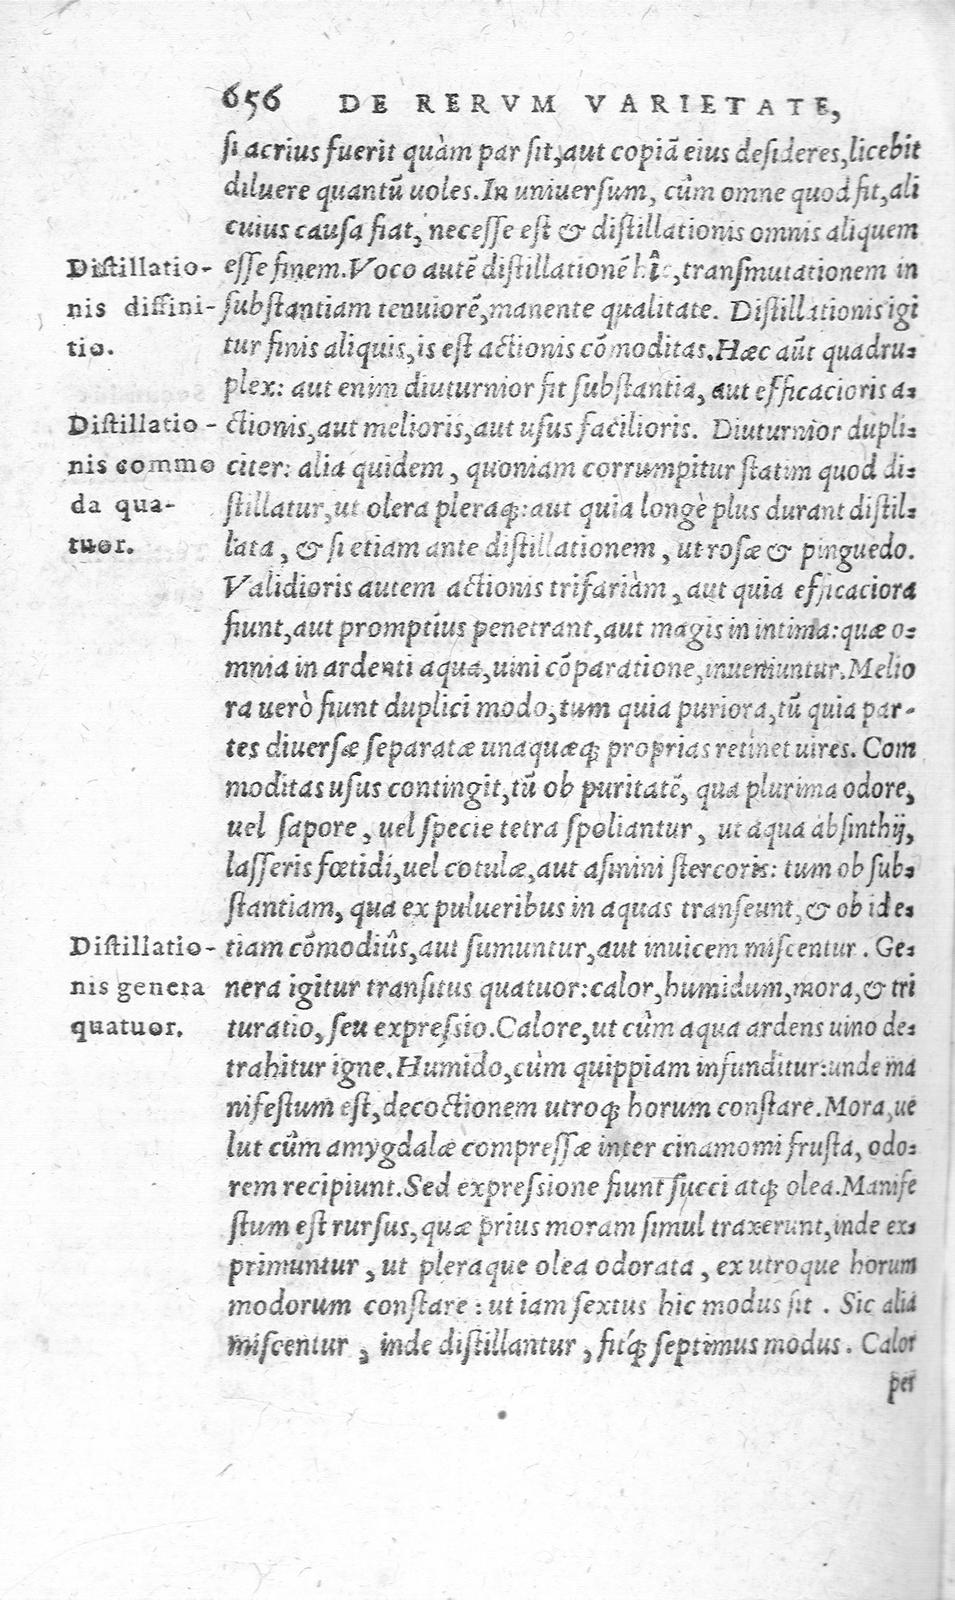 656 DE RERVM VARIETATE,
si acrius fuerit quàm par sit, aut copiã eius desideres, licebit
diluere quantũ uoles. In uniuersum, cûm omne quod fit, ali
cuius causa fiat, necesse est & distillationis omnis aliquem
Distillatio-
esse finem. Voco autẽ distillationẽ hîc, transmutationem in
nis diffini-
substantiam tenuiorẽ, manente qualitate. Distillationis igi
tio.
tur finis aliquis, is est actionis cõmoditas. Hæc aũt quadru-
plex: aut enim diuturnior fit substantia, aut efficacioris a-
Distillatio-
ctionis, aut melioris, aut usus facilioris. Diuturnior dupli-
nis commo
citer: alia quidem, quoniam corrumpitur statim quod di-
da qua-
stillatur, ut olera pleraq;: aut quia longè plus durant distil-
tuor.
lata, & si etiam ante distillationem, ut rosæ & pinguedo.
Validioris autem actionis trifariàm, aut quia efficaciora
fiunt, aut promptius penetrant, aut magis in intima: quæ o-
mnia in ardenti aqua, uini cõparatione, inueniuntur. Melio
ra uerò fiunt duplici modo, tum quia puriora, tũ quia par-
tes diuersæ separatæ unaquæq; proprias retinet uires. Com
moditas usus contingit, tũ ob puritatẽ, qua plurima odore,
uel sapore, uel specie tetra spoliantur, ut aqua absinthij,
lasseris fœtidi, uel cotulæ, aut asmini stercoris: tum ob sub-
stantiam, qua ex pulueribus in aquas transeunt, & ob ide-
Distillatio-
tiam cõmodiûs, aut sumuntur, aut inuicem miscentur. Ge-
nis genera
nera igitur transitus quatuor: calor, humidum, mora, & tri
quatuor.
turatio, seu expressio. Calore, ut cûm aqua ardens uino de-
trahitur igne. Humido, cùm quippiam infunditur: unde ma
nifestum est, decoctionem utroq; horum constare. Mora, ue
lut cûm amygdalæ compressæ inter cinamomi frusta, odo-
rem recipiunt. Sed expressione fiunt succi atq; olea. Manife
stum est rursus, quæ prius moram simul traxerunt, inde ex-
primuntur, ut pleraque olea odorata, ex utroque horum
modorum constare: ut iam sextus hic modus sit. Sic alia
miscentur, inde distillantur, fitq; septimus modus. Calor
per